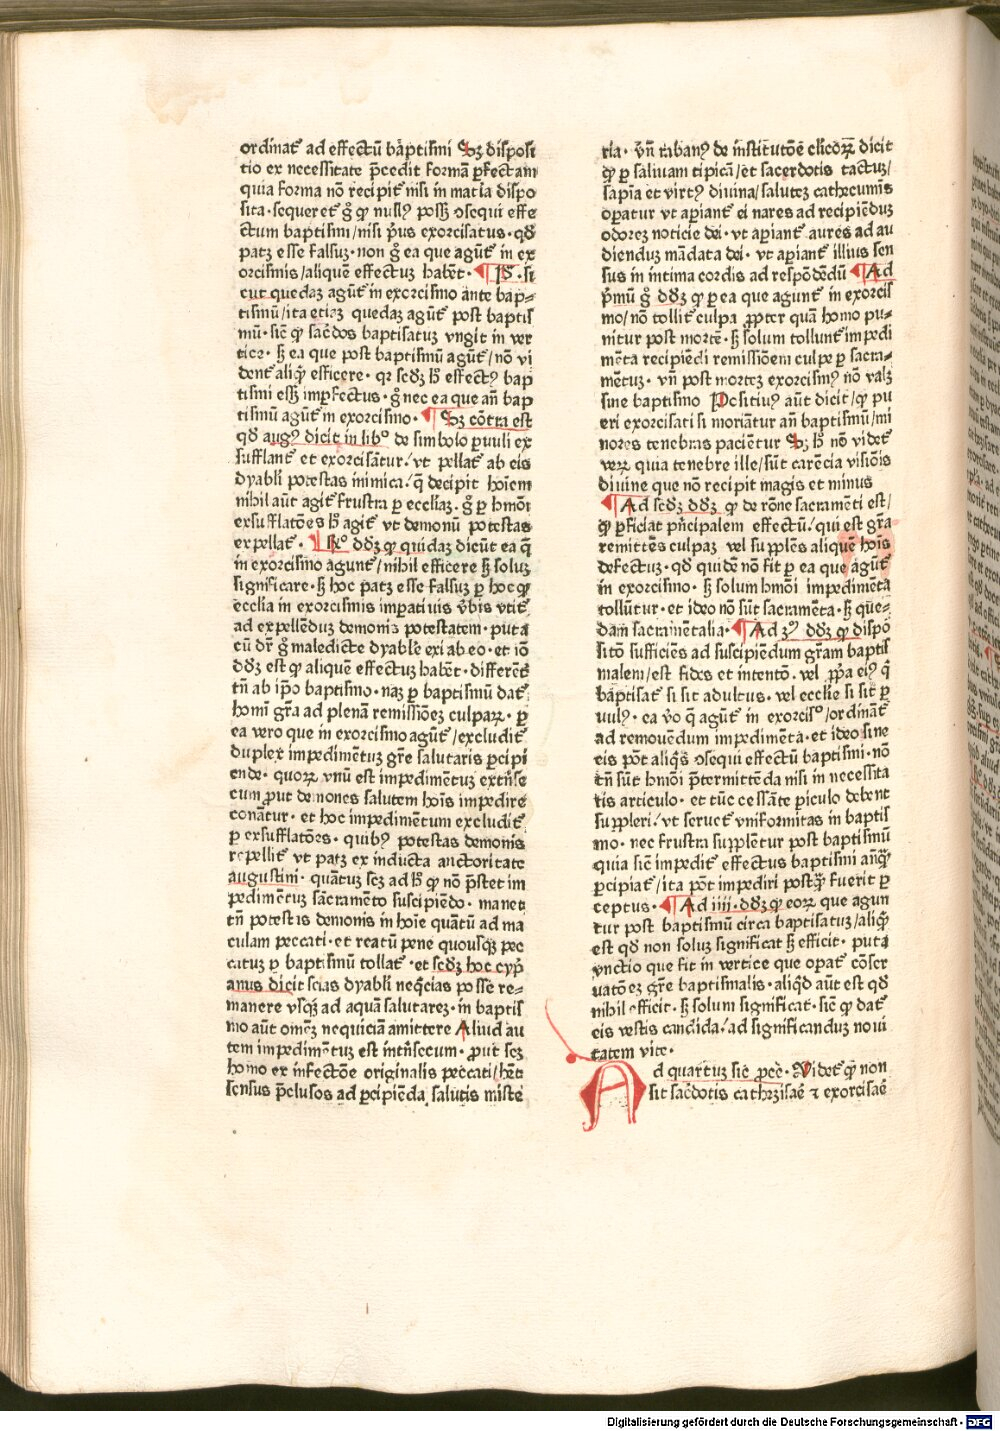 ordinat᷑ ad effectū bāptismi Sꝫ disposi
tio ex necessitate p̄cedit formā ꝑfectam
quia forma nō recipit᷑ nisi in māia dispo
sita. sequeret᷑ g̊ ꝙ nullꝰ possꝫ ꝯsequi effe
ctum baptismi/nisi pͥus exorcisatus. qd̄
patꝫ esse falsuꝫ. non g̊ ea que agūt᷑ in ex
orcismis/aliquē effectuꝫ habēt. ¶ P̄. si
cut quedaꝫ agūt᷑ in exorcismo ante bap⸗
tismū/ita etiaꝫ quedaꝫ agūt᷑ post baptis
mū. siē ꝙ sac̄dos baptisatuꝫ vngit in ver
tice. sꝫ ea que post baptismū agūt᷑/nō vi
dent᷑ aliqͥd efficere. qꝛ sc̄dꝫ h̄ effectꝰ bap
tismi essꝫ imꝑfectus. g̊ nec ea que an̄ bap
tismū agūt᷑ in exorcismo. ¶ Sꝫ cōtra est
qd̄ augꝰ dicit in libº de simbolo ꝑuuli ex
sufflant᷑ et exorcisātur/ vt pellat᷑ ab eis
dyabli potestas inimica/ q̄ decipit hoīem
nihil aūt agit᷑ frustra ꝑ ecclīaꝫ. g̊ ꝑ hmōi
exsufflatōes h̄ agit᷑ vt demonū potestas
expellat᷑. ¶ Rº dd̄ꝫ ꝙ quidaꝫ dicūt ea q̄
in exorcismo agunt᷑/nihil efficere sꝫ soluꝫ
significare. sꝫ hoc patꝫ esse falsuꝫ ꝑ hoc ꝙ
ecclīa in exorcismis imꝑatiuis v̄bis vtit᷑
ad expellēduꝫ demonis potestatem. puta
cū dr̄ g̊ maledicte dyable exi ab eo. et iō
dd̄ꝫ est ꝙ aliquē effectuꝫ habēt. differēt᷑
tn̄ ab ip̄o baptismo. naꝫ ꝑ baptismū dat᷑
homī gr̄a ad plenā remissiōeꝫ culpaꝝ. ꝑ
ea vero que in exorcismo agūt᷑/excludit᷑
duplex impedimētuꝫ gr̄e salutaris ꝑcipi
ende. quoꝝ vnū est impedimētuꝫ extͥnse
cum ꝓut demones salutem hoīs impedire
conātur. et hoc impedimētum excludit᷑
ꝑ exsufflatōes. quibꝰ potestas demonis
repellit᷑ vt patꝫ ex inducta auctoritate
augustini. quātuꝫ scꝫ ad h̄ ꝙ nō p̄stet im
pedimētuꝫ sacramēto suscipiēdo. manet
tn̄ potestas demonis in hoīe quātū ad ma
culam peccati. et reatū pene quousqꝫ pec
catuꝫ ꝑ baptismū tollat᷑. et sc̄dꝫ hoc cypͥ
anus dicit scias dyabli neqͥcias posse re⸗
manere vsqꝫ ad aquā salutareꝫ. in baptis
mo aūt omēꝫ nequiciā amittere Aliud au
tem impedimētuꝫ est intͥnsecum. ꝓut scꝫ
homo ex infectōe originalis peccati/hēt
sensus p̄clusos ad ꝑcipiēda salutis miste
ria. vn̄ rabanꝰ de institutōe clicoꝝ dicit
ꝙ ꝑ saliuam tipicā/et sacerdotis tactuꝫ/
sapīa et virtꝰ diuina/saluteꝫ cathecumīs
oꝑatur vt aꝑiant᷑ ei nares ad recipiēduꝫ
odoreꝫ noticie dei. vt aꝑiant᷑ aures ad au
dienduꝫ mādata dei. vt aꝑiant᷑ illius sen
sus in intima cordis ad respōdēdū ¶ Ad
pͥmū g̊ dd̄ꝫ ꝙ ꝑ ea que agunt᷑ in exorcis
mo/nō tollit᷑ culpa ꝓpter quā homo pu⸗
nitur post mortē. sꝫ solum tollunt᷑ impedi
mēta recipiēdi remissiōem culpe ꝑ sacra⸗
mētuꝫ. vn̄ post morteꝫ exorcismꝰ nō valꝫ
sine baptismo Positiuꝰ aūt dicit/ꝙ pu
eri exorcisati si moriātur an̄ baptismū/mi
nores tenebras pacient᷑ur Sꝫ h̄ nō videt᷑
veꝝ quia tenebre ille/sūt carēcia visiōis
diuine que nō recipit magis et minus
¶ Ad sc̄dꝫ dd̄ꝫ ꝙ de rōne sacramēti est/
ꝙ ꝑficiat pͥncipalem effectū/ qui est gr̄a
remittēs culpaꝫ vel supplēs aliquē hoīs
defectuꝫ. qd̄ quidē nō fit ꝑ ea que agūt᷑
in exorcismo. sꝫ solum hmōi impedimēta
tollūtur. et ideo nō sūt sacramēta. sꝫ que⸗
dam sacramētalia. ¶ Ad 3ꝰ dd̄ꝫ ꝙ dispō
sitō sufficiēs ad suscipiēdum gr̄am baptis
malem/est fides et intentō. vel ꝓpͥa eiꝰ q̄
baptisat᷑ si sit adultus. vel ecclīe si sit ꝑ
uulꝰ. ea v̄o q̄ agūt᷑ in exorcisº/ordināt᷑
ad remouēdum impedimēta. et ideo sine
eis pōt aliqͥs ꝯsequi effectū baptismi. nō
tn̄ sūt hmōi p̄termittēda nisi in necessita
tis articulo. et tūc cessāte ꝑiculo debent
suppleri/ vt seruet᷑ vniformitas in baptis
mo. nec frustra supplētur post baptismū
quia siē impedit᷑ effectus baptismi anqͣꝫ
ꝑcipiat᷑/ita pōt impediri postqͣꝫ fuerit ꝑ
ceptus. ¶ Ad iiii. dd̄ꝫ ꝙ eoꝝ que agun
tur post baptismū circa baptisatuꝫ/aliqͥd
est qd̄ non soluꝫ significat sꝫ efficit. puta
vnctio que fit in vertice que oꝑat᷑ cōser
uatōeꝫ gr̄e baptismalis. aliqͥd aūt est qd̄
nihil efficit. sꝫ solum significat. siē ꝙ dat᷑
eis vestis candida/ ad significanduꝫ noui
tatem vite.
Ad quartuꝫ siē ꝓcē. Videt᷑ ꝙ non
sit sac̄dotis cathezisāe ⁊ exorcisaē
Digitalisierung gefördert durch die Deutsche Forschungsgemeinschaft - DFG